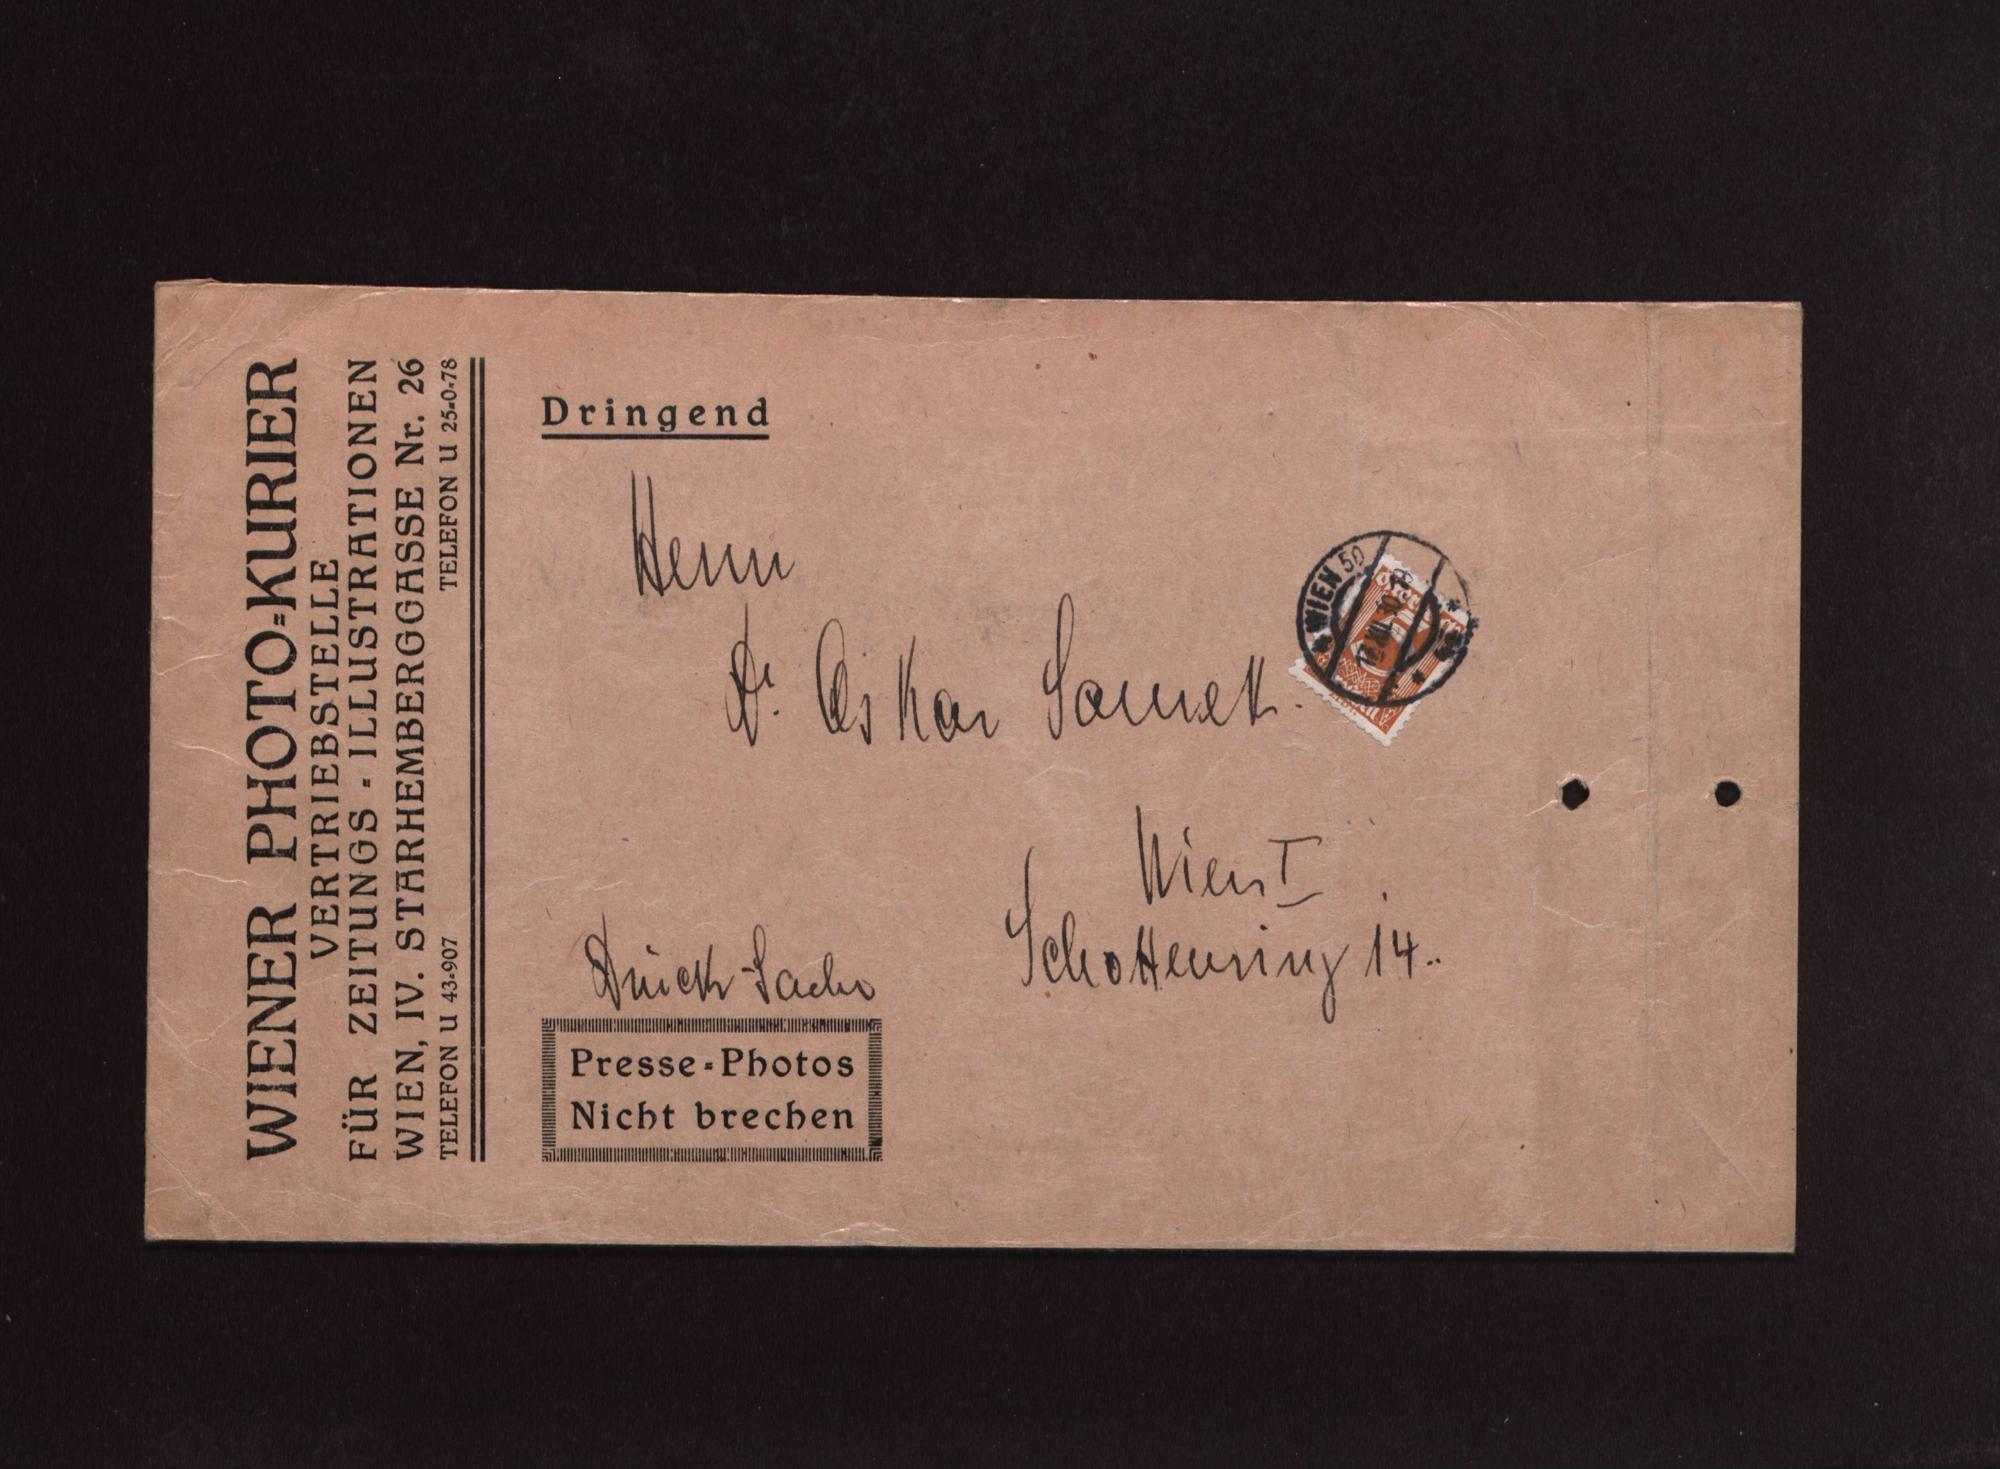 WIENER PHOTO-KURIER
VERTRIEBSTELLE
FÜR ZEITUNGS-ILLUSTRATIONEN
WIEN, IV. STARHEMBERGGASSE Nr. 26
TELEFON U 43-907 TELEFON U 25-0-78
Dringend
Herrn
Dr. Oskar Samek.
Wien I
Schottenring 14..
Druck-Sache
Presse-Photos
Nicht brechen
WIEN 50